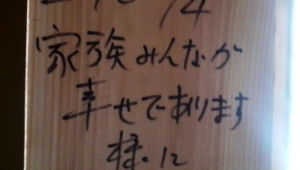 家族みんなが
幸せであります
様に